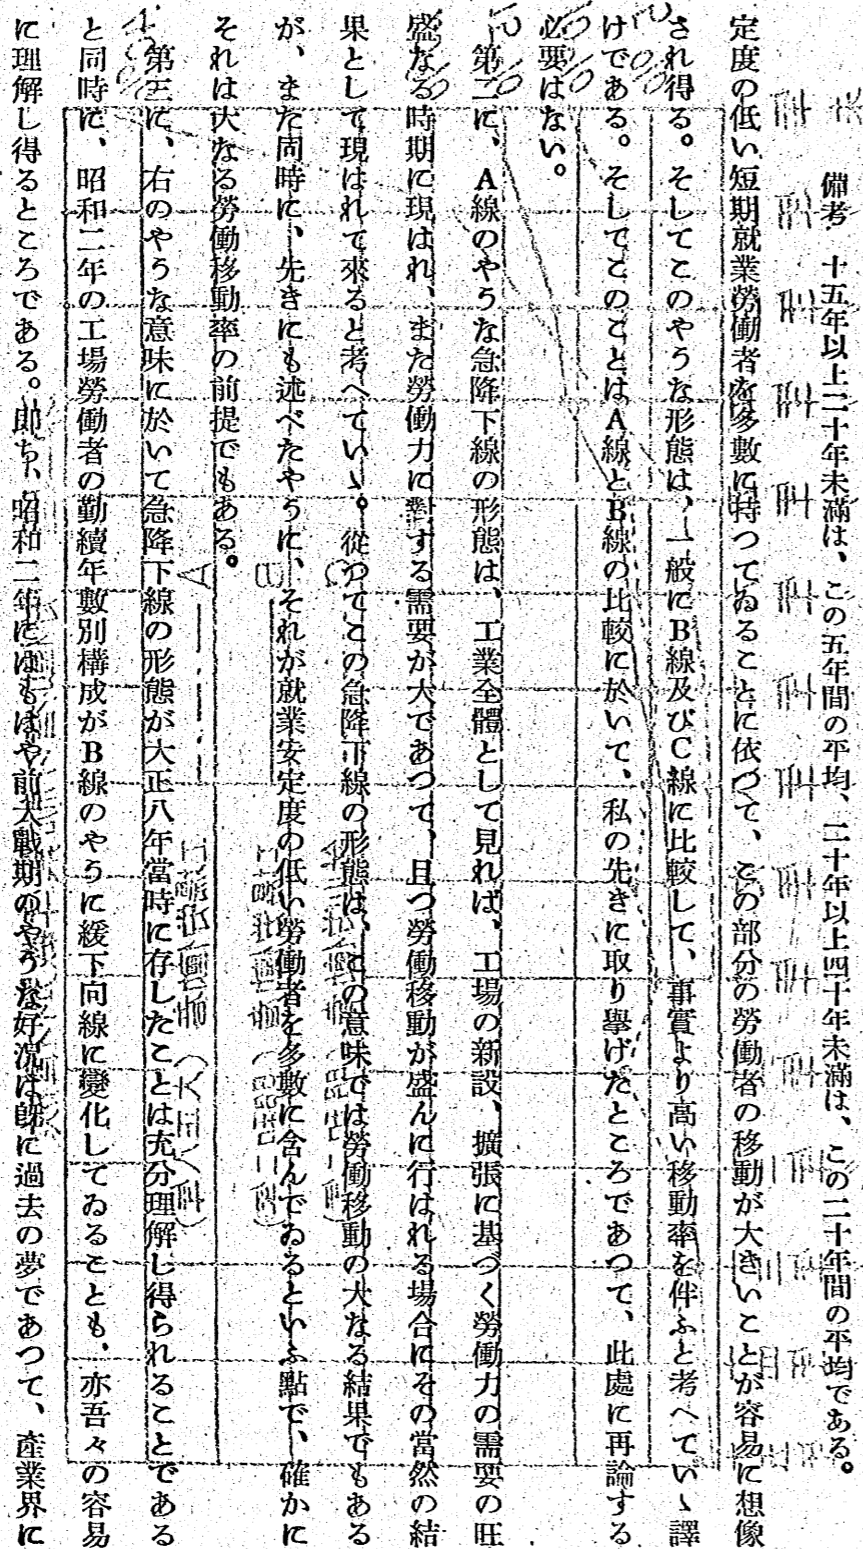 備考　十五年以上二十年未滿は、この五年間の平均、二十年以上四十年未滿は、この二十年間の平均である。
定度の低い短期就業勞働者を多數に持つてゐることに依つて、この部分の勞働者の移動が大きいことが容易に想像
され得る。そしてこのやうな形態は、一般にB線及びC線に比較して、事實より高い移動率を伴ふと考へていゝ譯
けである。そしてこのことはA線とB線の比較に於いて、私の先きに取り擧げたところであつて、此處に再論する
必要はない。
第二に、A線のやうな急降下線の形態は、工業全體として見れば、工場の新設、擴張に基づく勞働力の需要の旺
盛なる時期に現はれ、また勞働力に對する需要が大であつて、且つ勞働移動が盛んに行はれる場合にその當然の結
果として現はれて來ると考へていゝ。從つてこの急降下線の形態は、この意味では勞働移動の大なる結果でもある
が、また同時に、先きにも述べたやうに、それが就業安定度の低い勞働者を多數に含んでゐるといふ點で、確かに
それは大なる勞働移動率の前提でもある。
第三に、右のやうな意味に於いて急降下線の形態が大正八年當時に存したことは充分理解し得られることである
と同時に、昭和二年の工場勞働者の勤續年數別構成がB線のやうに緩下向線に變化してゐることも、亦吾々の容易
に理解し得るところである。卽ち、昭和二年にはもはや前大戰期のやうな好況は旣に過去の夢であつて、産業界に